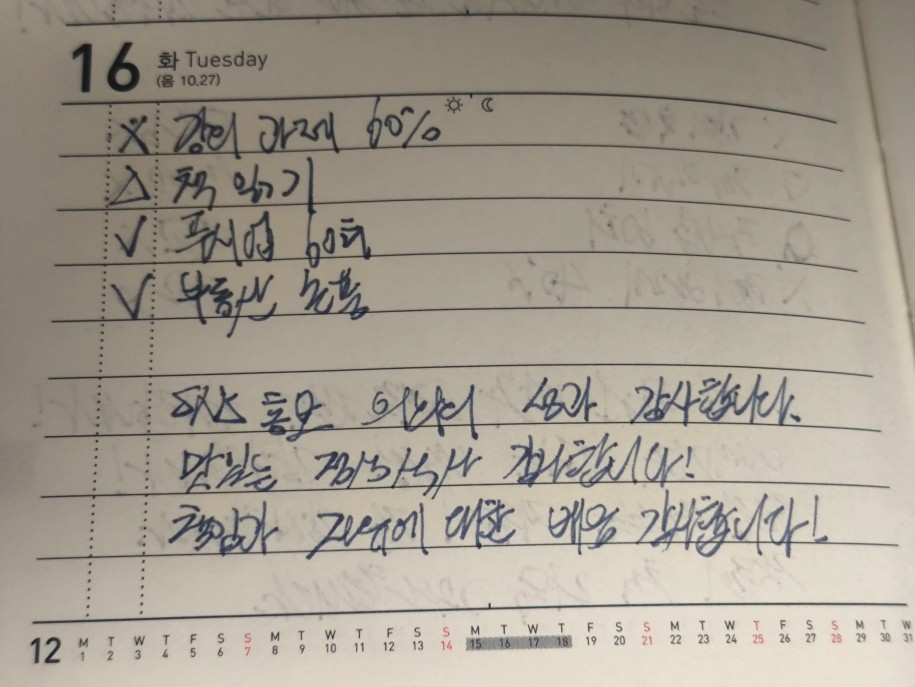 16 화 Tuesday
(음 10,27)
※ 강의 과제 60%
△ 책 읽기
✓ 푸시업 60회
✓ 부동산 논물
성과 감사합니다.
맛있는 점심식사 감사합니다!
책임과 에 대한 배움 감사합니다!
12 M T W T F S S M T W T F S S M T W T F S S M T W T F S S M T W
1 2 3 4 5 6 7 8 9 10 11 12 13 14 15 16 17 18 19 20 21 22 23 24 25 26 27 28 29 30 31